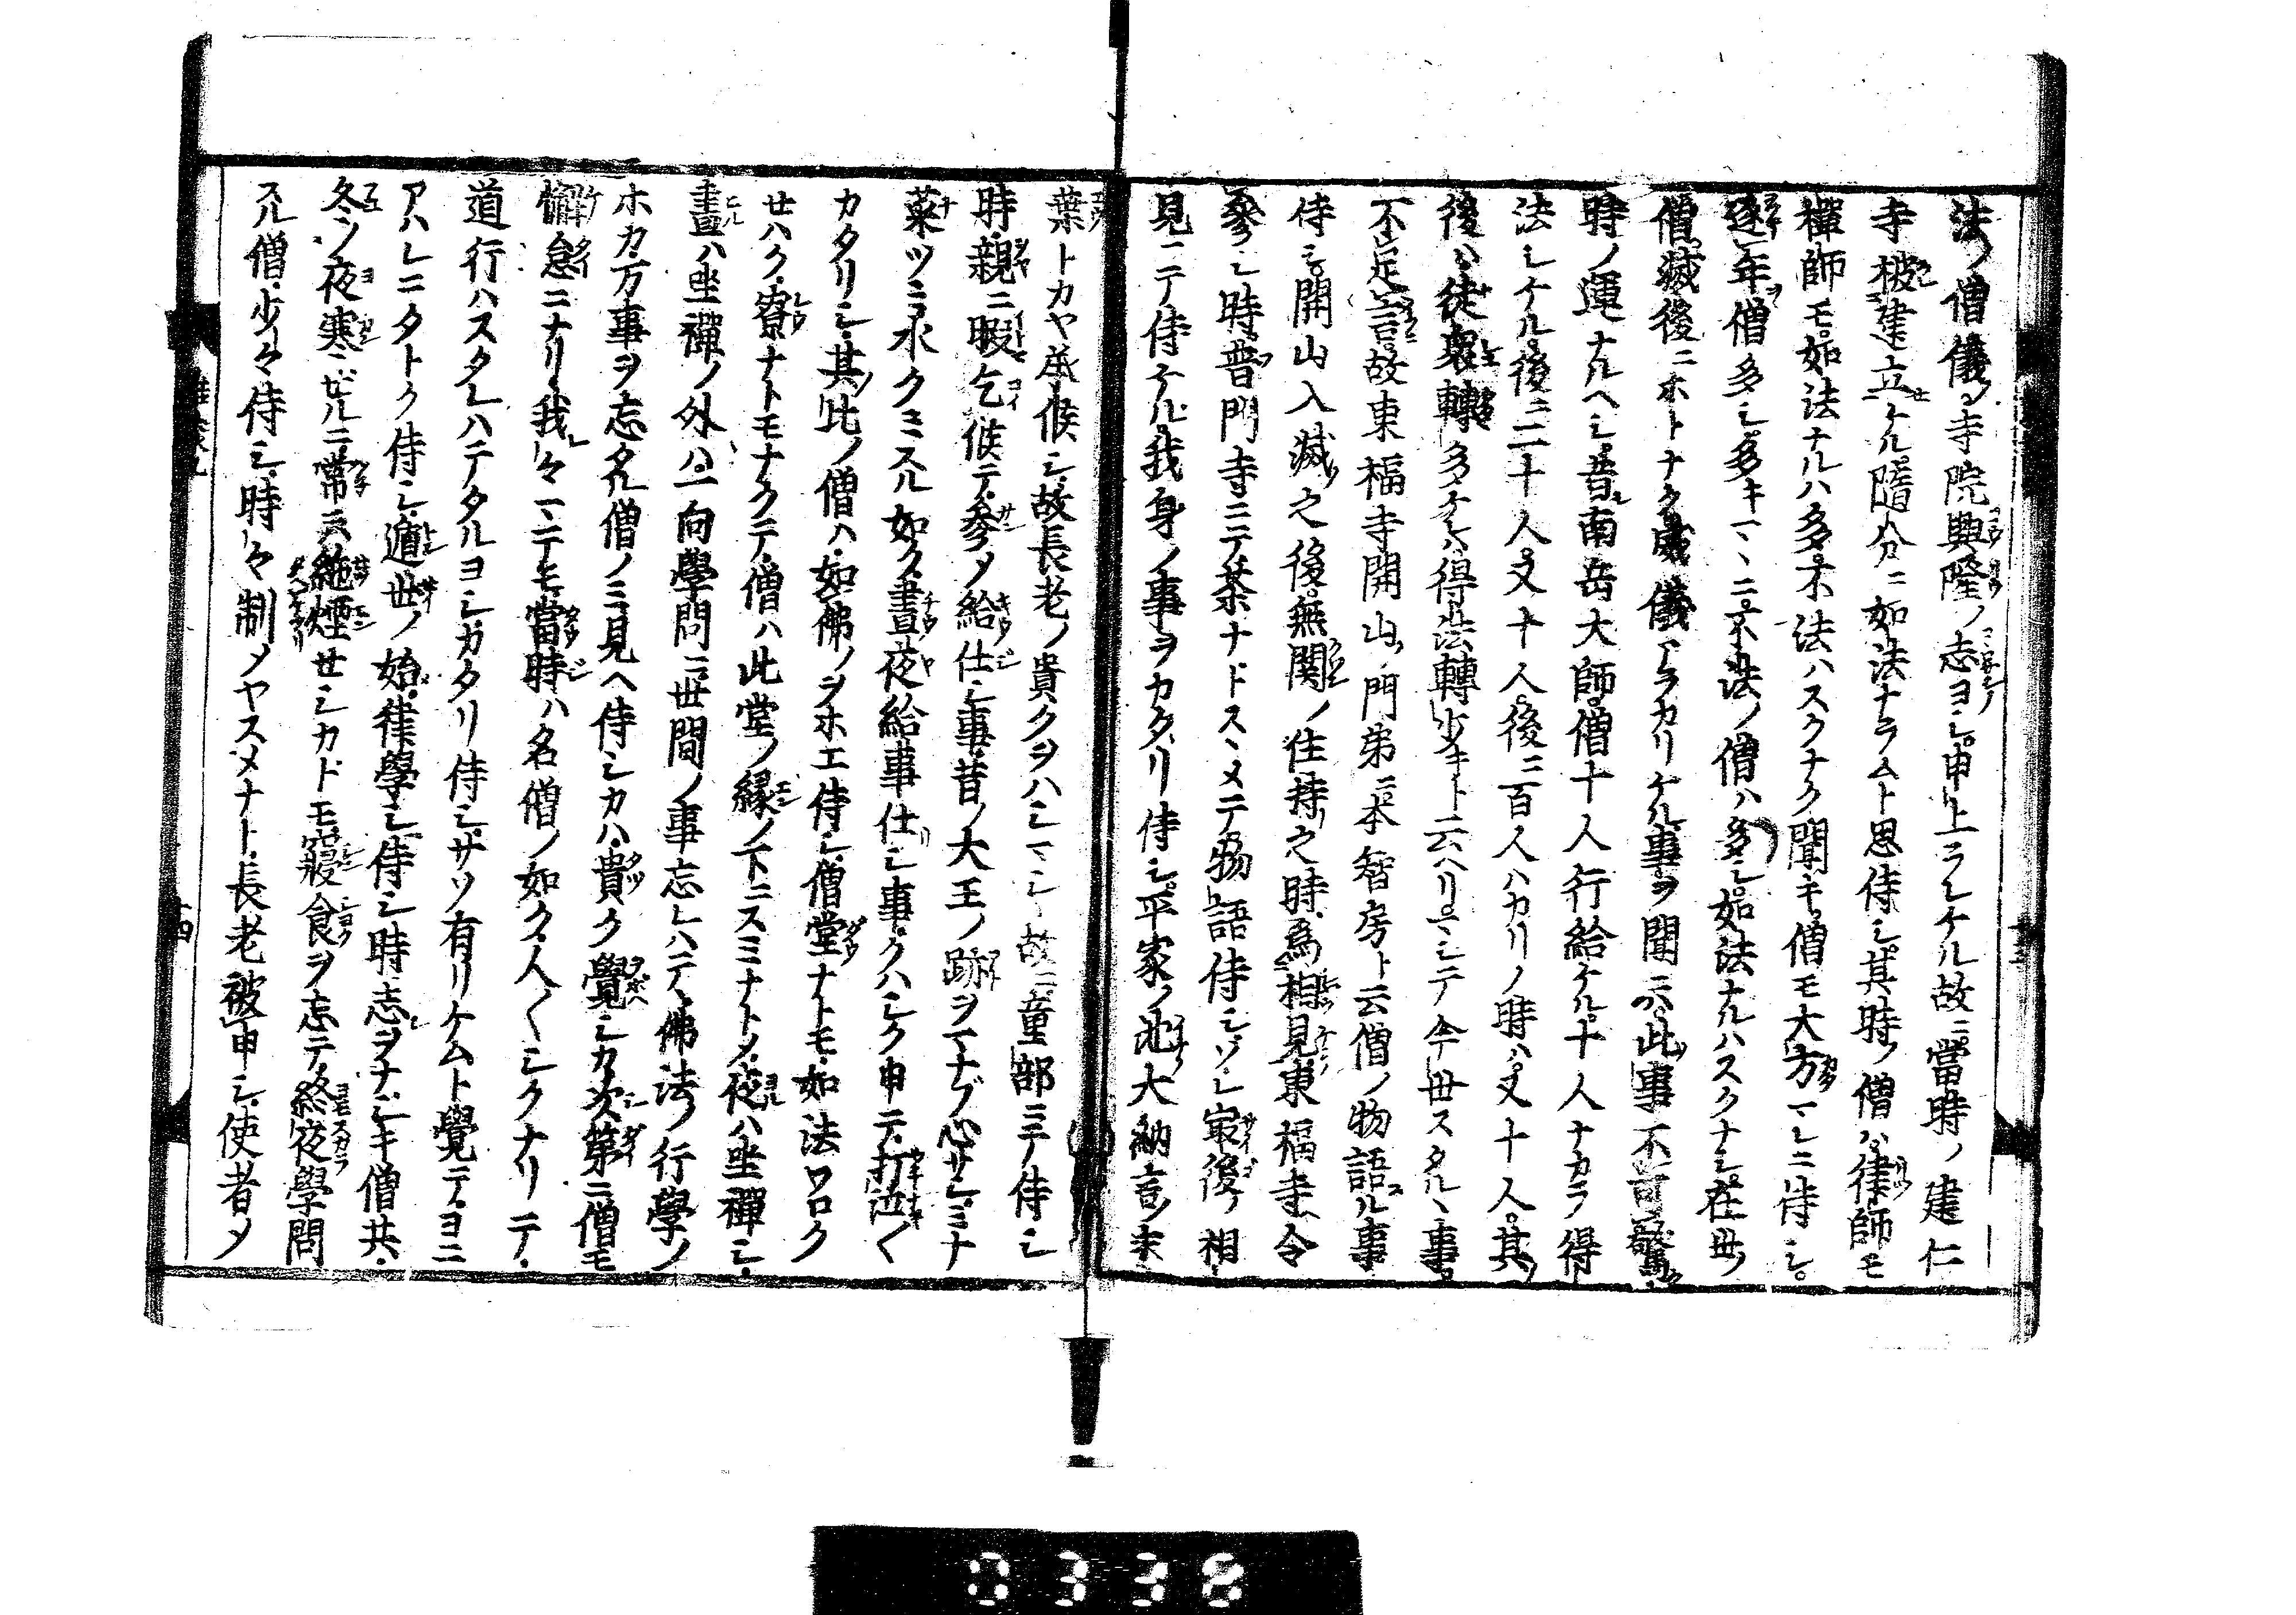 法ノ僧儀ノ寺院興隆ノ志ヨシ申上ラレケル故ニ當時ノ建仁
寺被建立ケル隨分ニ如法ナラムト思侍シ其時ノ僧ハ律師モ
禪師モ如法ナルハ多不法ハスクナク聞キ僧モ大方マレニ侍シ
逐年僧多シ多キマヽニ不法ノ僧ハ多シ如法ナルハスクナシ在世ノ
僧滅後ニホトナク威儀アラカリケル事ヲ聞ニハ此事不可驚
時ノ運ナルヘシ昔南岳大師僧十人行給ケル十人ナカラ得
法シケル後ニ二十人又十人後ニ百人ハカリノ時ハ又十人其
後ハ徒衆轉多ケレハ得法轉少キト云ヘリマシテ今世スタルヽ事
不足言故東福寺開山ノ門弟ニ本智房ト云僧ノ物語ル事
侍シ開山入滅之後無関ノ住持之時為相見東福寺令
參シ時普門寺ニテ茶ナドスヽメテ物語侍シソレ最後ノ相
見ニテ侍ケル我身ノ事ヲカタリ侍シ平家ノ池大納言ノ末
葉トカヤ承候シ故長老ノ貴クヲハシマシヽ故ニ童部ミテ侍シ
時親ニ暇乞候テ參メ給仕シ事昔ノ大王ノ跡ヲマナブ心サシミナ
菜ツミ水クミスル如ク晝夜給事仕シ事クハシク申テ打泣く
カタリシ其比ノ僧ハ如佛ノヲホエ侍シ僧堂ナトモ如法ワロク
せハク寮ナトモナクテ僧ハ此堂ノ縁ノ下ニスミナトメ夜ハ坐禪シ
晝ハ坐禪ノ外ハ一向學問ニ世間ノ事忘レハテヽ佛法ノ行學ノ
ホカ万事ヲ忘タル僧ノミ見ヘ侍シカハ貴ク覺シカ次第ニ僧モ
懈怠ニナリ我々マテモ當時ハ名僧ノ如ク人くシクナリテ
道行ハスタレハテタルヨシカタリ侍シサソ有リケムト覺テヨニ
アハレニタトク侍シ遁世ノ始律學シ侍シ時志ヲナジキ僧共
冬ノ夜寒ゼルニ常ニ絶煙せシカドモ寢食ヲ忘テ終夜學問
スル僧少々侍シ時々制メヤスメナト長老被申シ使者メ